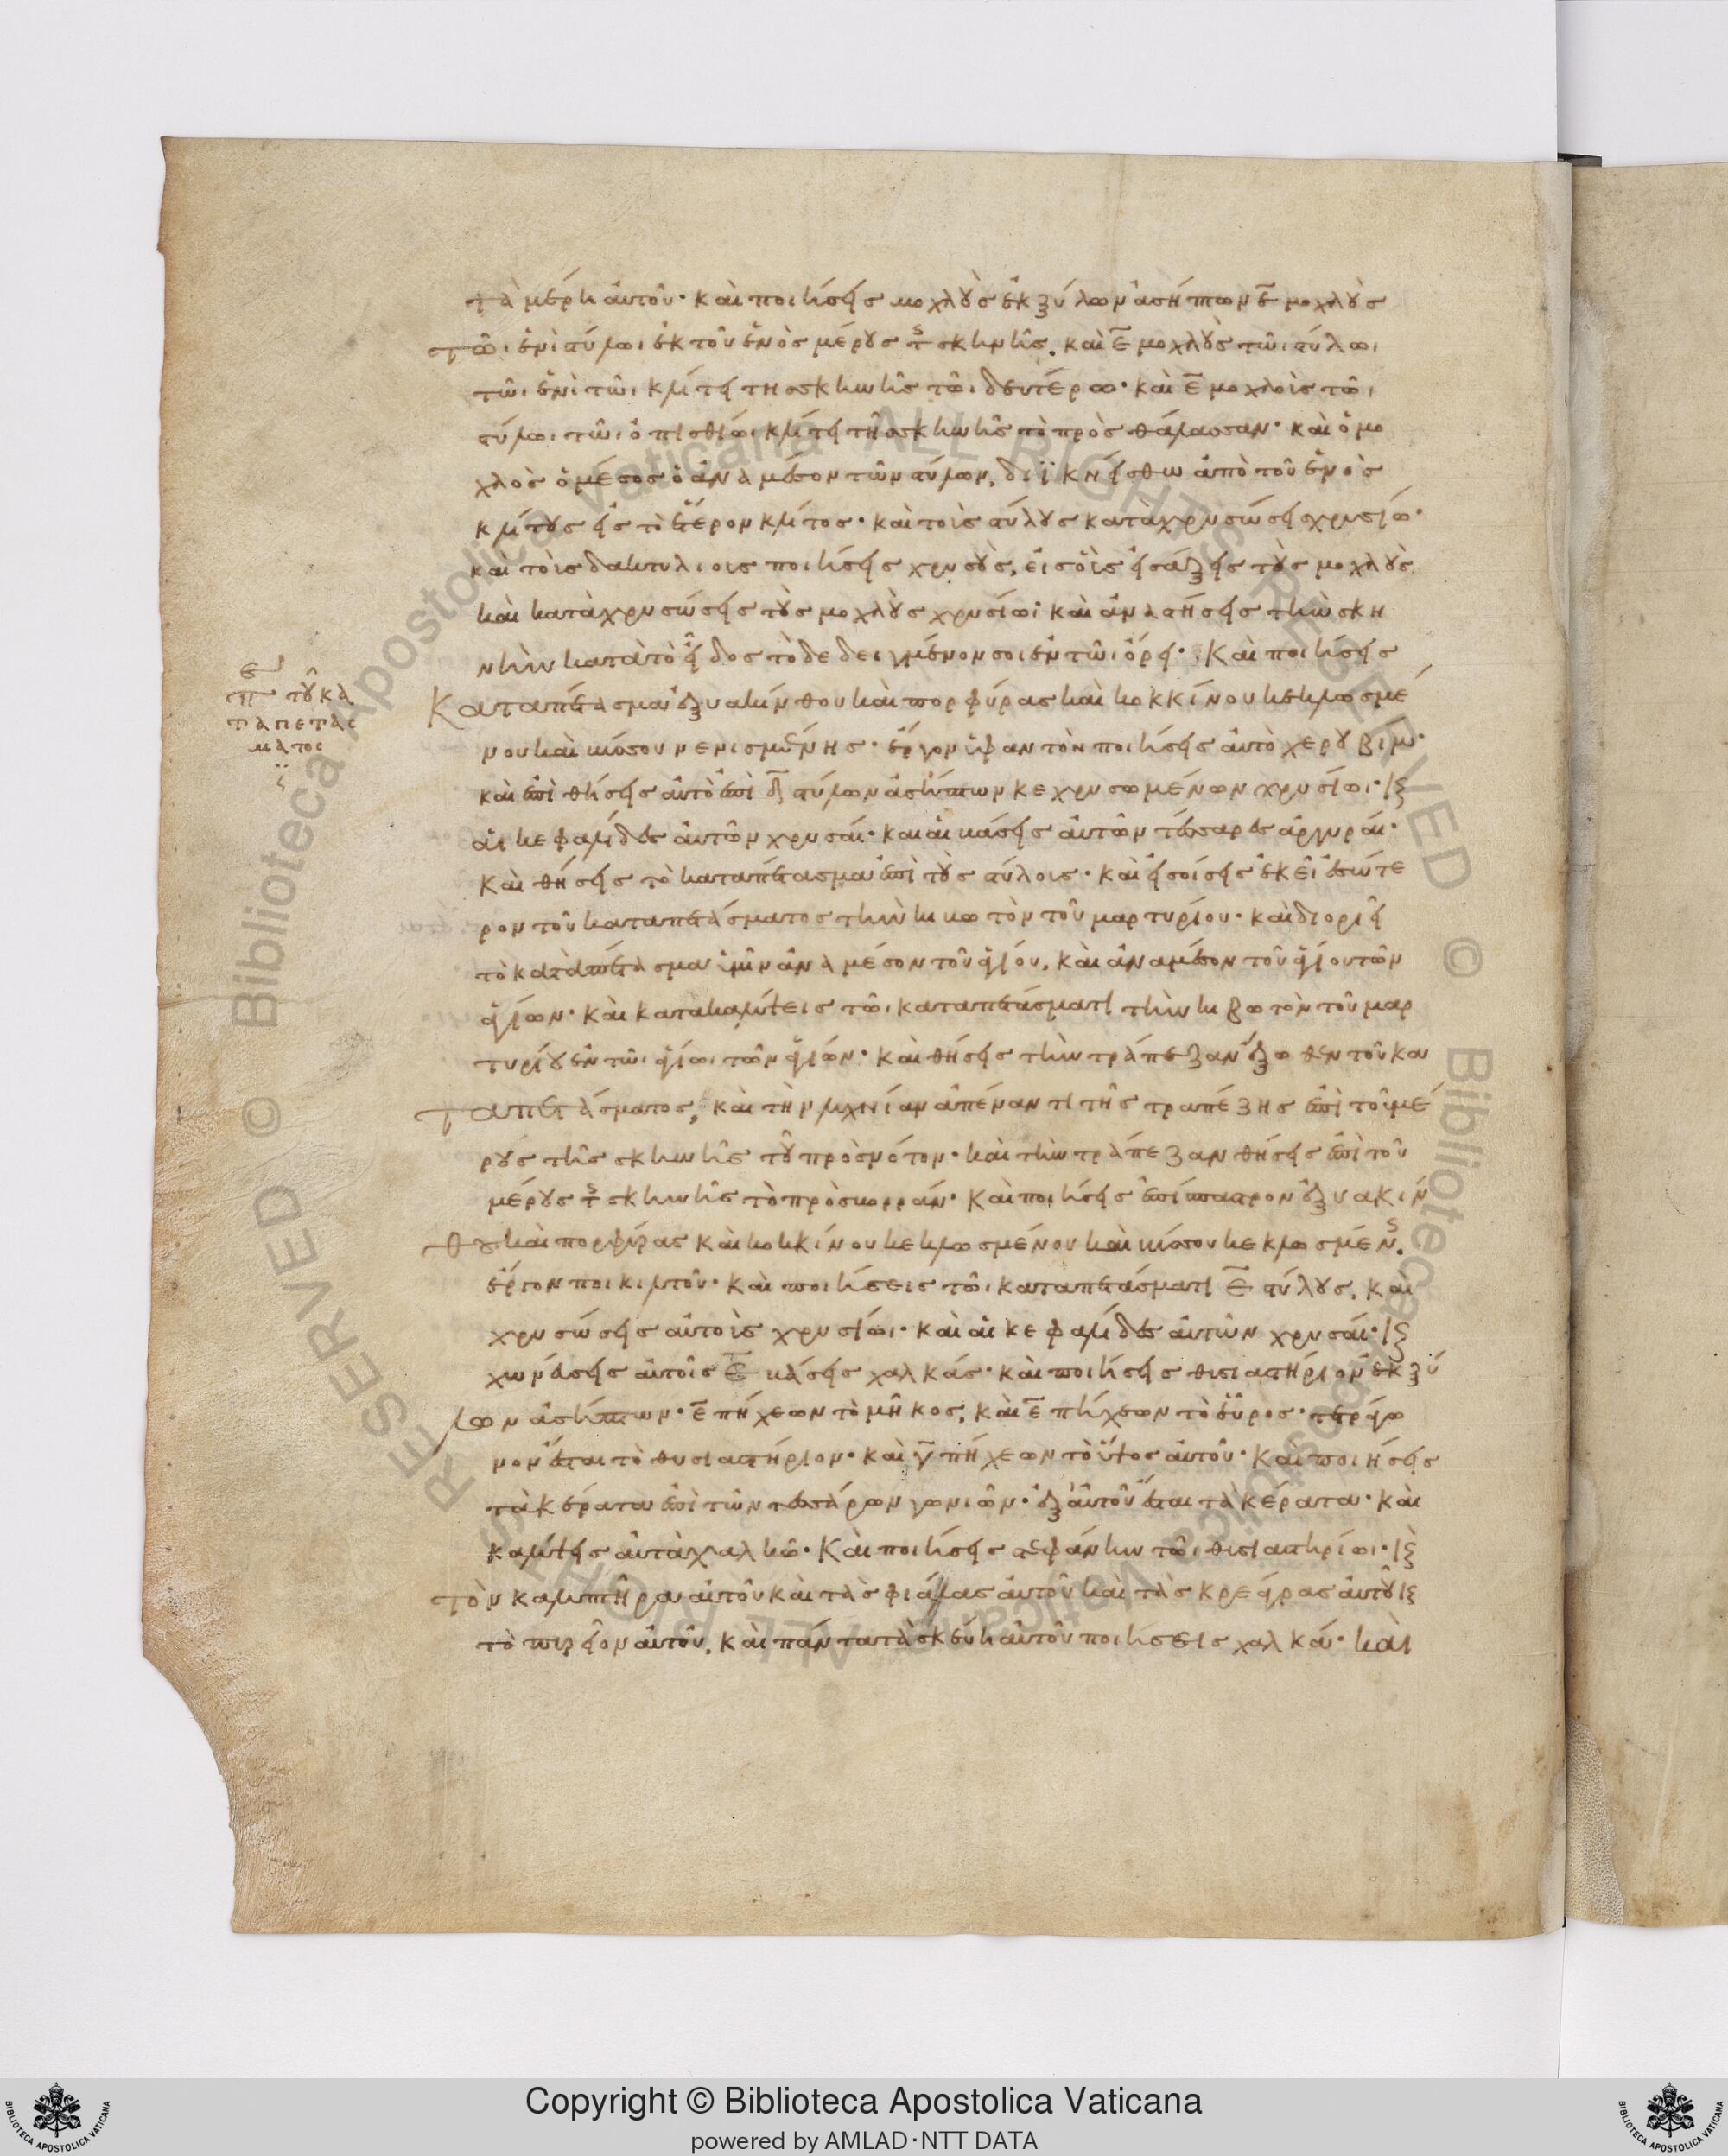 τὰ μέρη αὐτοῦ· καὶ ποιήσεις μοχλοὺς ἐκ ξύλων ἀσήπτων ε̅ μοχλοὺς
τῶι ἑνὶ στύλωι ἐκ τοῦ ἑνὸς μέρους τῆς σκηνῆς. καὶ ε̅ μοχλοὺς τῶι στύλωι
τῶι ἑνὶ τῶι κλίτει τῆς σκηνῆς τῶι δευτέρω· καὶ ε̅ μοχλοὶς τῶι
στύλωι τῶι ὀπισθίωι κλίτει τῆς σκηνῆς τὸ πρὸς θάλασσαν· καὶ ὁ μο
χλὸς ὁ μέσος ὁ ἀνα μέσον τῶν στύλων, διϊκνείσθω ἀπὸ τοῦ ἑνὸς
κλίτους εἰς τὸ ἕτερον κλίτος· καὶ τοὶς στύλους καταχρυσώσεις χρυσίω·
καὶ τοὶς δακτυλιοις ποιήσεις χρυσοὺς, εἰς οἷς εἰσάξεις τοὺς μοχλοὺς
καὶ καταχρυσώσεις τοὺς μοχλοὺς χρυσίωι· καὶ ἀναστήσεις τὴν σκη
νὴν κατὰ τὸ εἶδος τὸ δεδειγμένον σοι ἐν τῶι ὄρει· Καὶ ποιήσεις
Καταπέτασμα ἐξ υακίνθου καὶ πορφύρας καὶ κοκκίνου κεκλωσμέ
νου καὶ βύσσου νενισμένης· ἔργον ὑφαντὸν ποιήσεις αὐτὸ χερουβίμ·
καὶ ἐπιθήσεις αὐτὸ ἐπὶ δ̅ στύλων ἀσήπτων κεχρυσωμένων χρυσίωι· κ(αὶ)
αἱ κεφαλίδες αὐτῶν χρυσαῖ· και αἱ βάσεις αὐτῶν τέσσαρες ἀργυραῖ·
Καὶ θήσεις τὸ καταπέτασμα ἐπὶ τοὺς στύλοις· καὶ εἰσοίσεις ἐκεῖ ἐσώτε
ρον τοῦ καταπετάσματος τὴν κιβωτὸν τοῦ μαρτυρίου· καὶ διοριεῖ
τὸ καταπέτασμα ὑμῖν ἀνὰ μέσον τοῦ ἁγίου, καὶ ἀναμέσον τοῦ ἁγίου τῶν
ἁγίων· καὶ κατακαλύψεις τῶι καταπετάσματι τὴν κιβωτὸν τοῦ μαρ
τυρίου ἐν τῶι ἁγίωι τῶν ἁγίων· καὶ θήσεις τὴν τράπεζαν ἔξωθεν τοῦ κα
ταπετάσματος, καὶ τὴν λυχνίαν ἀπέναντι τῆς τραπέζης ἐπὶ τοῦ μέ
ρους τῆς σκηνῆς τοῦ πρὸς νότον· καὶ τὴν τράπεζαν θήσεις ἐπὶ τοῦ
μέρους τῆς σκηνῆς τὸ πρὸς βορρᾶν· Καὶ ποιήσεις ἐπίσπαστρον ἐξ υακίν
θου καὶ πορφύρας καὶ κοκκίνου κεκλωσμένου καὶ βύσσου κεκλωσμένης.
ἔργον ποικιλτοῦ· καὶ ποιήσεις τῶι καταπετάσματι ε̅ στύλους, καὶ
χρυσώσεις αὐτοὶς χρυσίωι· καὶ αἱ κεφαλίδες αὐτῶν χρυσαῖ· κ(αὶ)
χωνεύσεις αὐτοῖς ε̅ βάσεις χαλκάς· καὶ ποιήσεις θυσιαστήριον ἐκ ξύ
λων ἀσήπτων· ε̅ πήχεων τὸ μῆκος, καὶ ε̅ πήχεων τὸ εὖρος· τετράγω
νον ἔσται τὸ θυσιαστήριον· καὶ γ̅ πήχεων τὸ ὕψος αὐτοῦ· Καὶ ποιήσεις
τὰ κέρατα ἐπὶ τῶν τεσσάρων γωνιῶν· ἐξ αὐτοῦ ἔσται τὰ κέρατα· καὶ
καλύψεις αὐτὰ χαλκῶ· Καὶ ποιήσεις στεφάνην τῶι θυσιαστηρίωι· κ(αὶ)
τὸν καλυπτῆρα αὐτοῦ καὶ τὰς φιάλας αὐτοῦ καὶ τὰς κρεάγρας αὐτοῦ κ(αὶ)
τὸ πυρεῖον αὐτοῦ, καὶ πάντα τὰ σκεύη αὐτοῦ ποιήσεις χαλκᾶ· καὶ
τοῦ κα
ταπετάσ
ματος